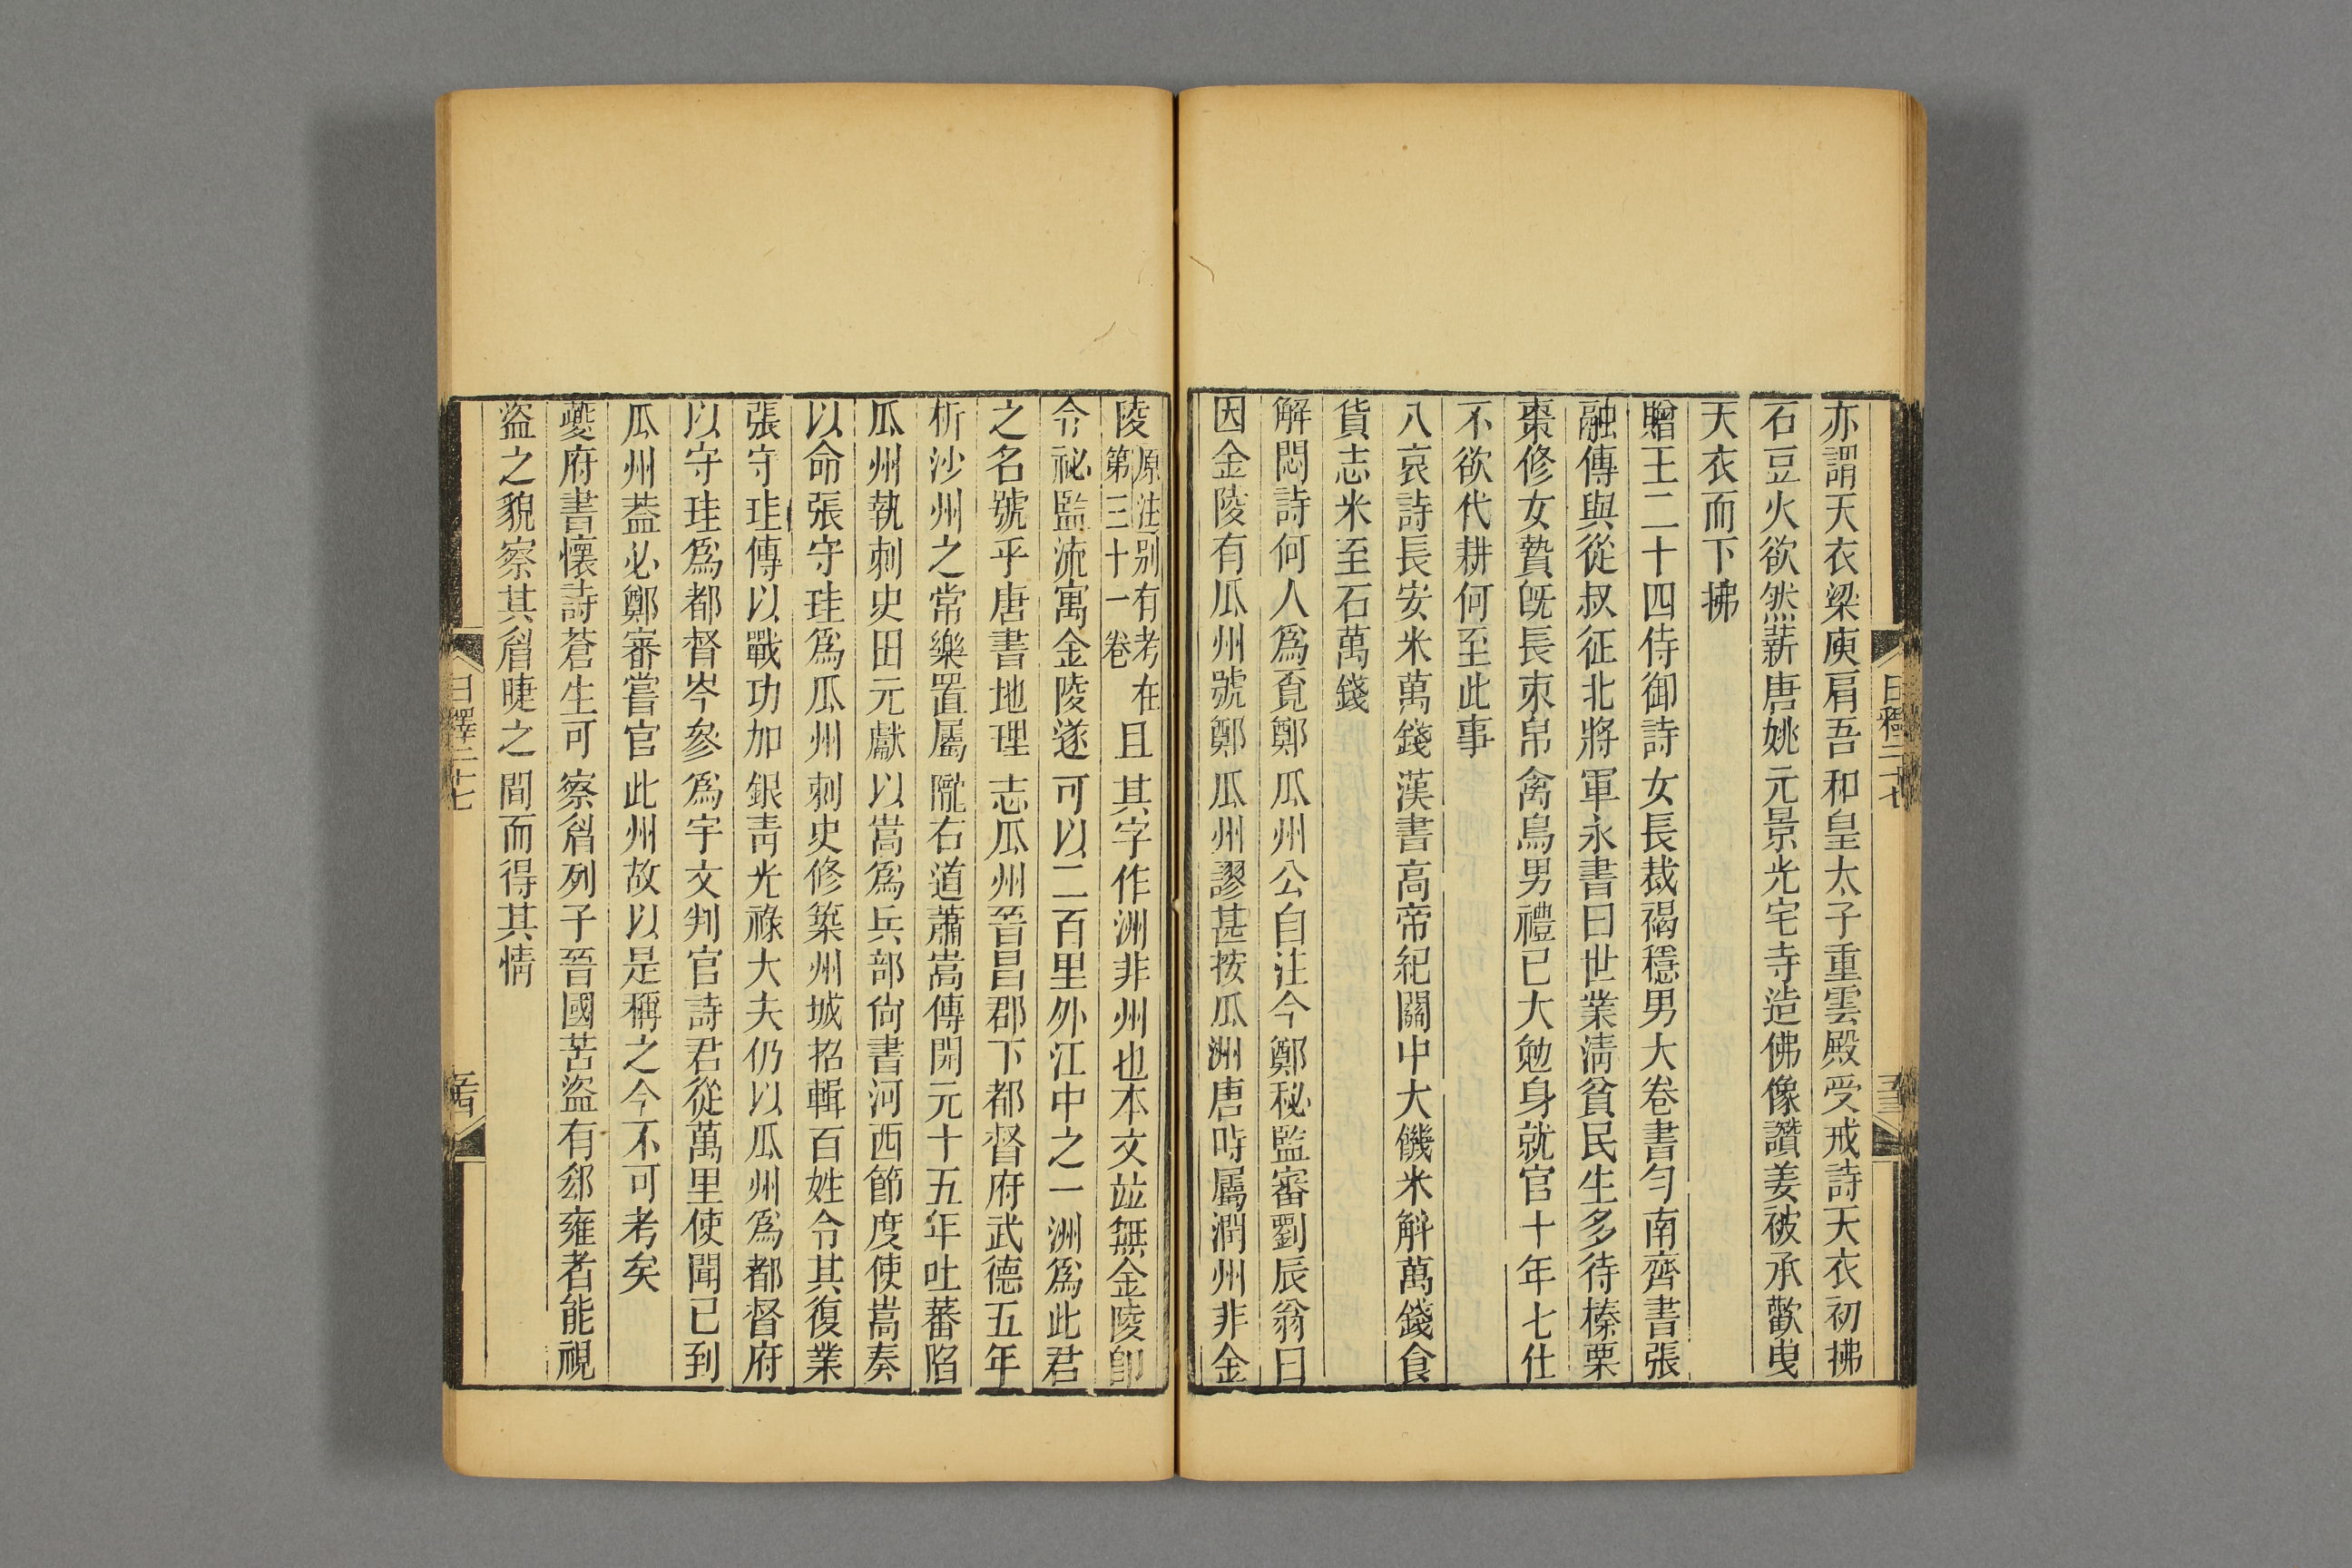 亦謂天衣梁庾肩吾和皇太子重雲殿受戒詩天衣初拂
石豆火欲然薪唐姚元景光宅寺造佛像讚姜被承歡曳
天衣而下拂
贈王二十四侍御詩女長裁褐穩男大卷書勻南齊書張
融傳與從叔征北將軍永書曰世業淸貧民生多待榛栗
棗修女贄旣長束帛禽鳥男禮已大勉身就官十年七仕
不欲代耕何至此事
八哀詩長安米萬錢漢書高帝紀關中大饑米斛萬錢食
貨志米至石萬錢
解悶詩何人爲覓鄭瓜州公自注今鄭秘監審劉辰翁曰
因金陵有瓜州號鄭瓜州謬甚按瓜洲唐時屬潤州非金
陵原注別有考在第三十一卷且其字作洲非州也本文竝無金陵卽
令祕監流寓金陵遂可以二百里外江中之一洲爲此君
之名號乎唐書地理志瓜州晉昌郡下都督府武德五年
析沙州之常樂置屬隴右道蕭嵩傳開元十五年吐蕃陷
瓜州執刺史田元獻以嵩爲兵部尙書河西節度使嵩奏
以命張守珪爲瓜州刺史修築州城招輯百姓令其復業
張守珪傳以戰功加銀靑光祿大夫仍以瓜州爲都督府
以守珪爲都督岑參爲宇文判官詩君從萬里使聞已到
瓜州蓋必鄭審嘗官此州故以是稱之今不可考矣
夔府書懷詩蒼生可察眉列子晉國苦盜有郄雍者能視
盜之貌察其眉睫之間而得其情
日釋二十七